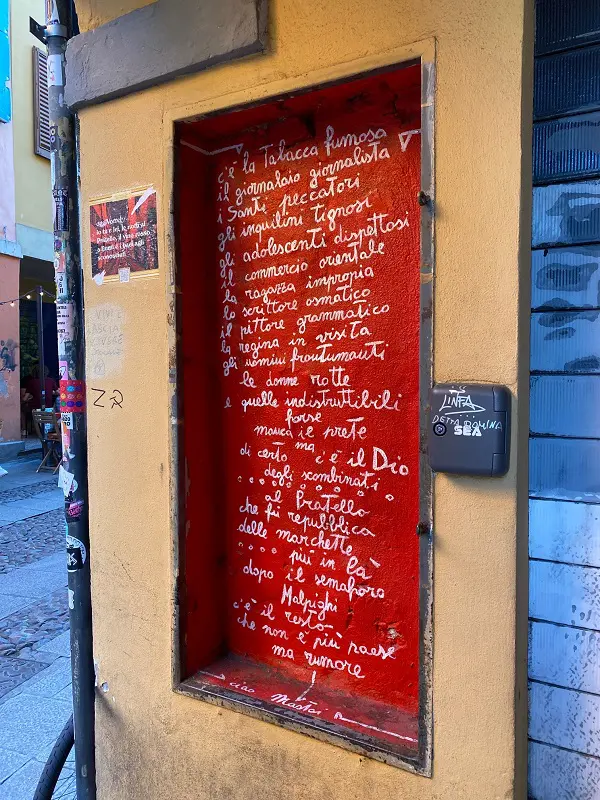 c'è la Tabacca fumosa
il giornalaio giornalista
i Santi peccatori
gli inquilini tignosi
gli adolescenti dispettosi
il commercio orientale
la ragazza impropia
lo scrittore osmatico
il pittore grammatico
la regina in visita
gli uomini frontumauti
le donne rotte
e quelle indistruttibili
forse
manca il prete
ma
di certo c'è il Dio
degli scombinati
al Pratello
che fu repubblica
delle marchette
più in là
dopo il semaforo
Malpighi
c'è il resto
che non è più paese
ma rumore
ciao Mastoi
LINFA
DETTA DOMINA
SEA